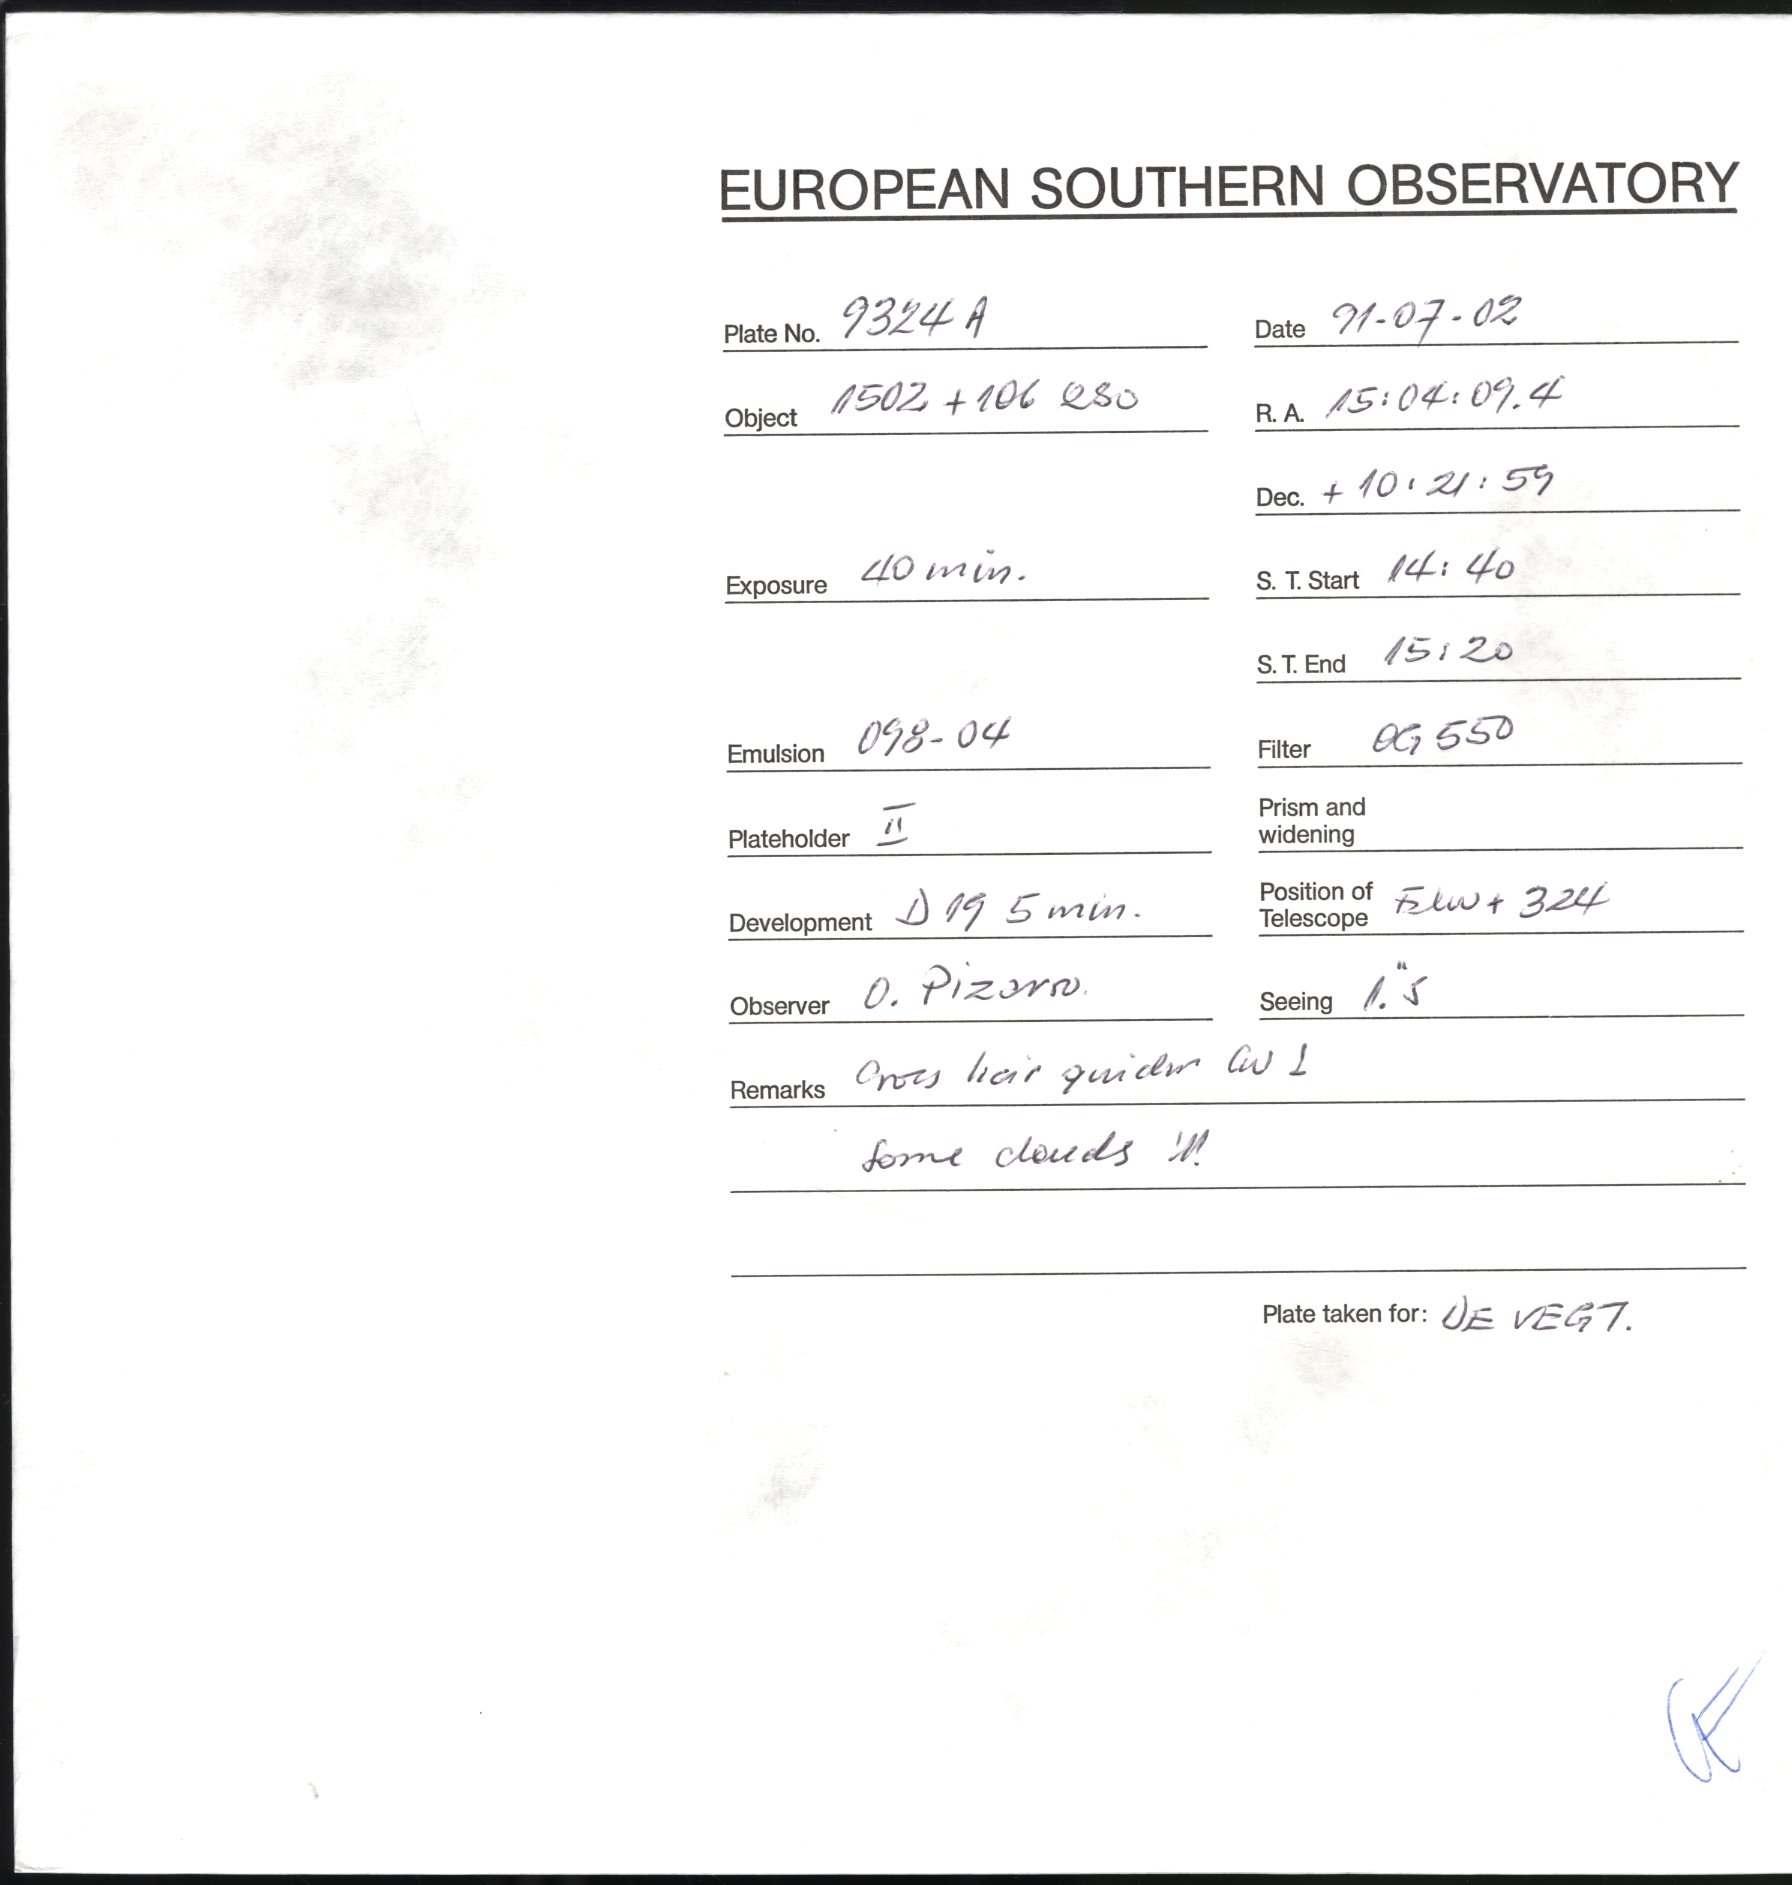 EUROPEAN SOUTHERN OBSERVATORY
Plate No. 9324 A Date 91-07-02
Object 1502 + 106 QSO R. A. 15:04:09.4
Dec. + 10:21:59
Exposure 40 min. S. T. Start 14:40
S. T. End 15:20
Emulsion 098-04 Filter OG 550
Plateholder II Prism and widening
Development D 19 5 min. Position of Telescope + 324
Observer O. Pizarro. Seeing 1."5
Remarks Cross hair guider
Some clouds !!!
Plate taken for: DE VEGT.